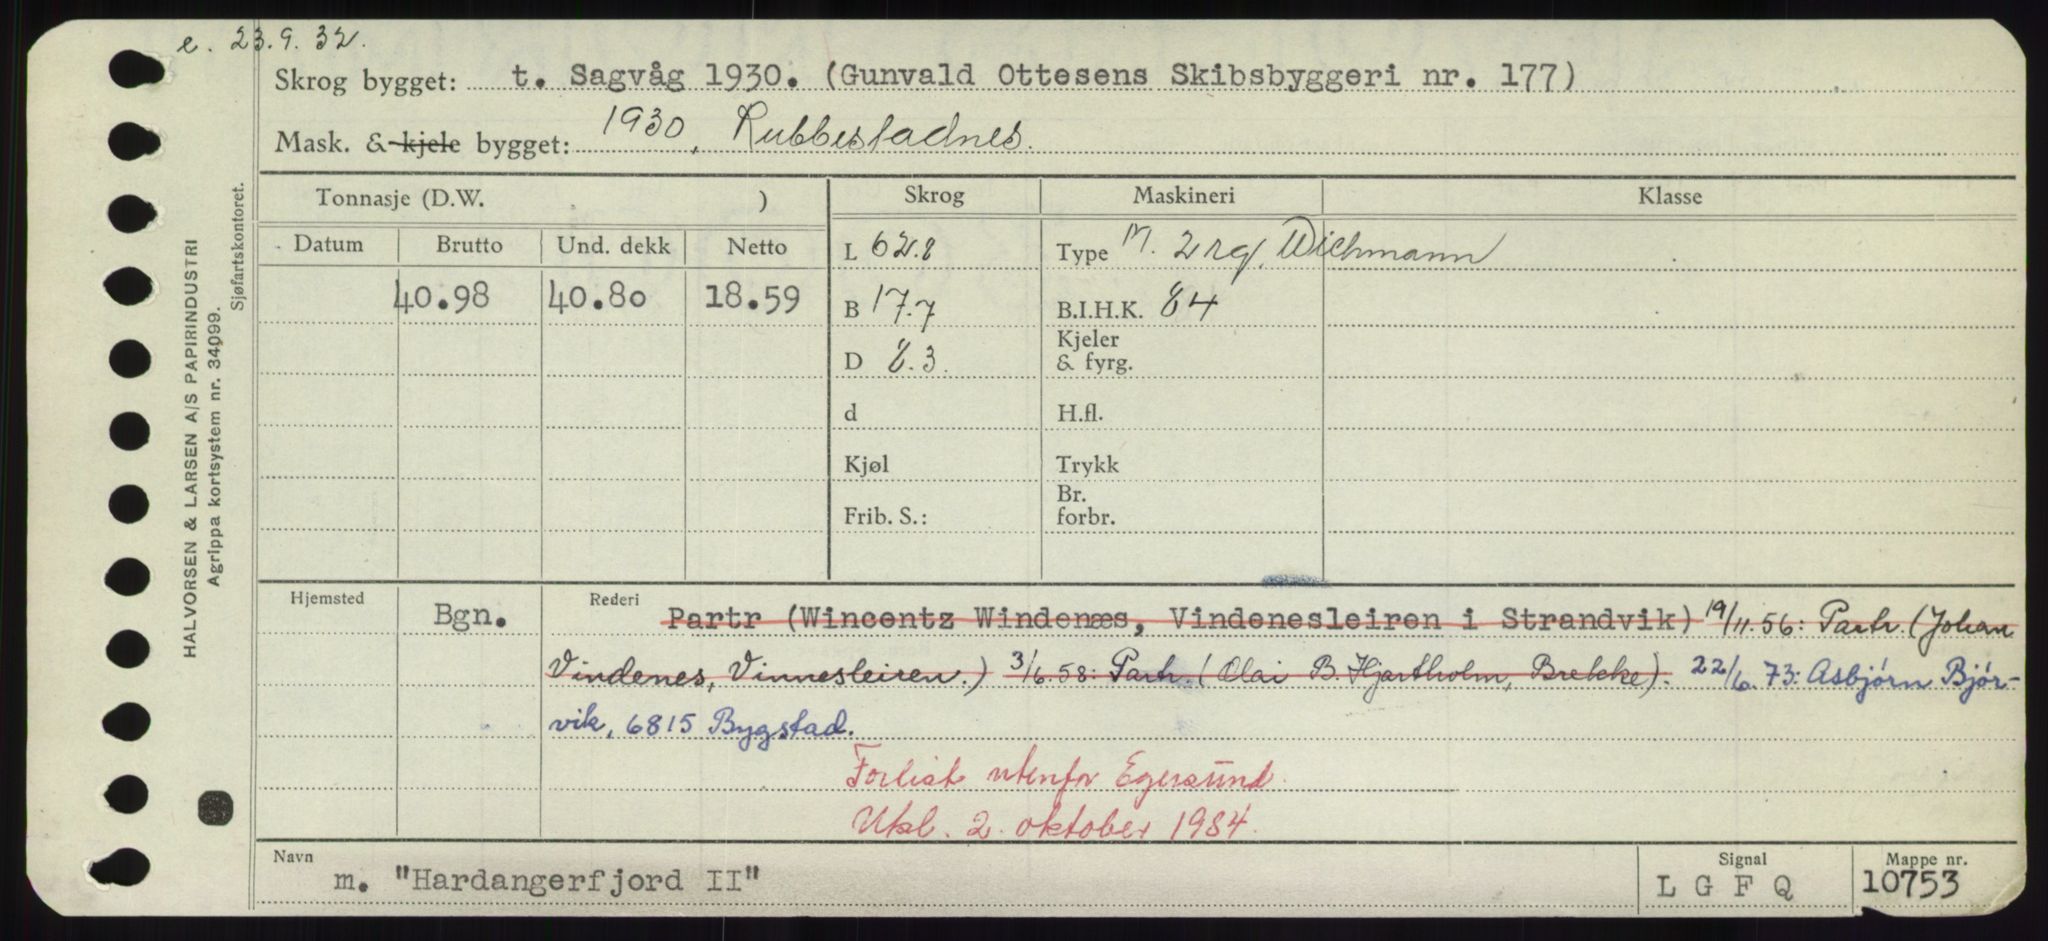 e. 23.9.32.
Skrog bygget: t. Sagvåg 1930. (Gunvald Ottesens Skibsbyggeri nr. 177)
Mask. & kjele bygget: 1930, Rubbestadnes.
Tonnasje (D.W. ) Skrog Maskineri Klasse
Datum Brutto Und. dekk Netto L 62.8 Type M. 2 syl. Wichmann
40.98 40.80 18.59 B 17.7 B.I.H.K. 84
D 8.3 Kjeler & fyrg.
d H.fl.
Kjøl Trykk
Frib. S.: Br. forbr.
Hjemsted Bgn. Rederi Partr (Wincentz Windenæs, Vindenesleiren i Strandvik) 19/11.56: Partr. (Johan
Vindenes, Vinnesleiren.) 3/6.58: Partr. (Olai B. Hjartholm, Brekke). 22/6.73: Asbjørn Bjør-
vik, 6815 Bygstad.
Forlist utenfor Egersund.
Utkl. 2. oktober 1984.
Navn m. "Hardangerfjord II" Signal L G F Q Mappe nr. 10753
HALVORSEN & LARSEN A/S PAPIRINDUSTRI
Agrippa kortsystem nr. 34099.
Sjøfartskontoret.